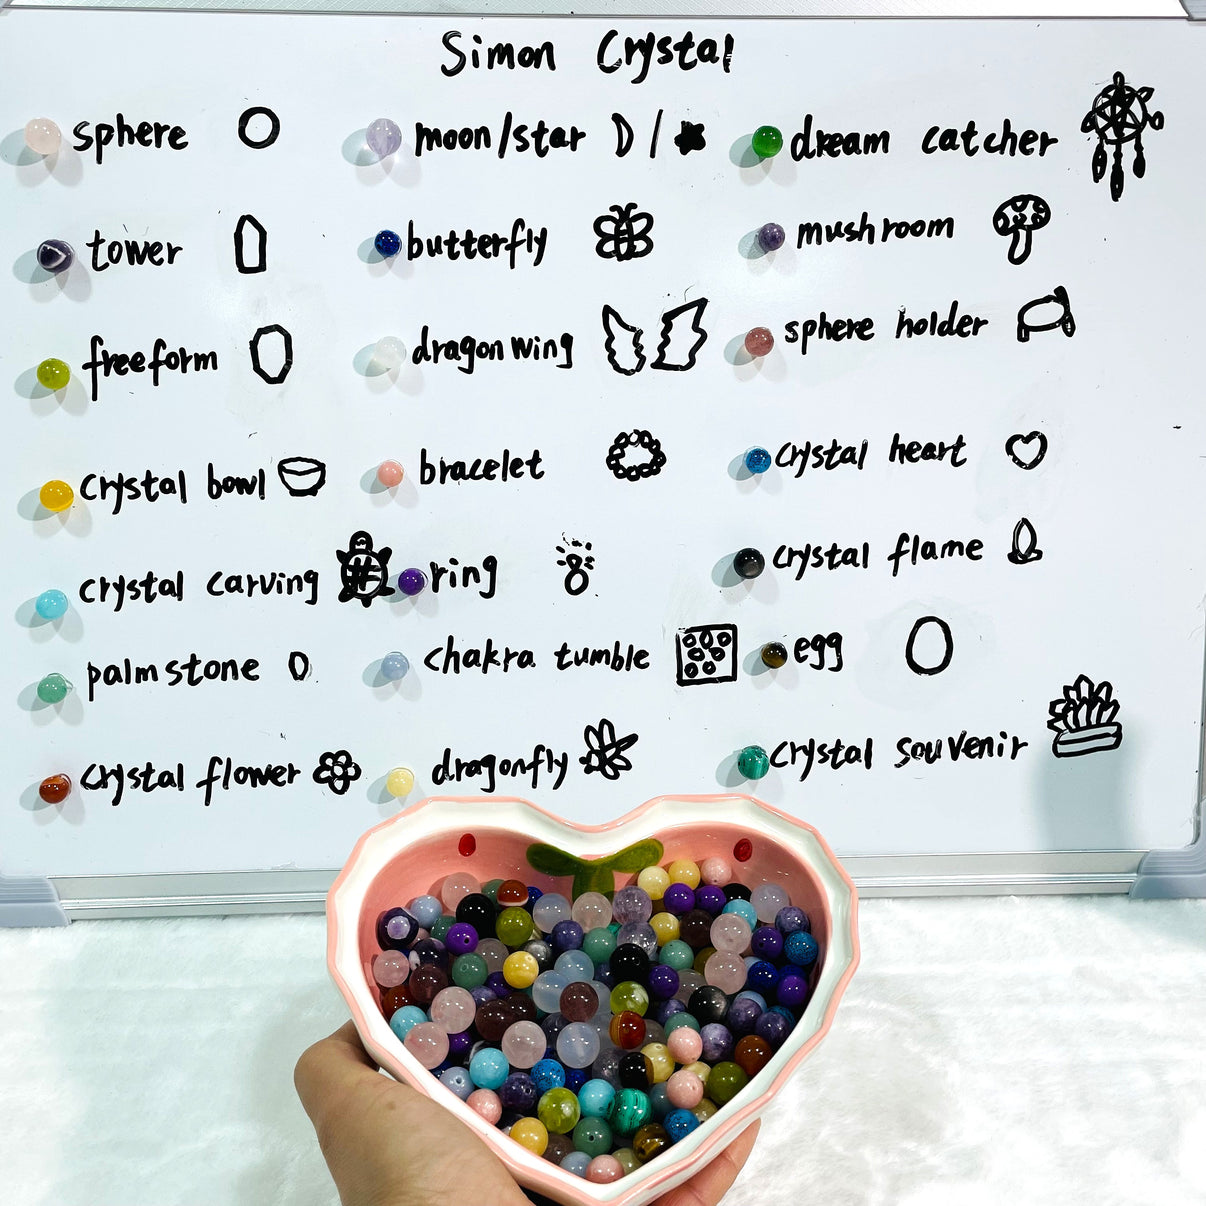 Simon Crystal
sphere
moon/star
dream catcher
tower
butterfly
mushroom
freeform
dragon wing
sphere holder
crystal bowl
bracelet
crystal heart
crystal carving
ring
crystal flame
palm stone
chakra tumble
egg
crystal flower
dragonfly
crystal souvenir